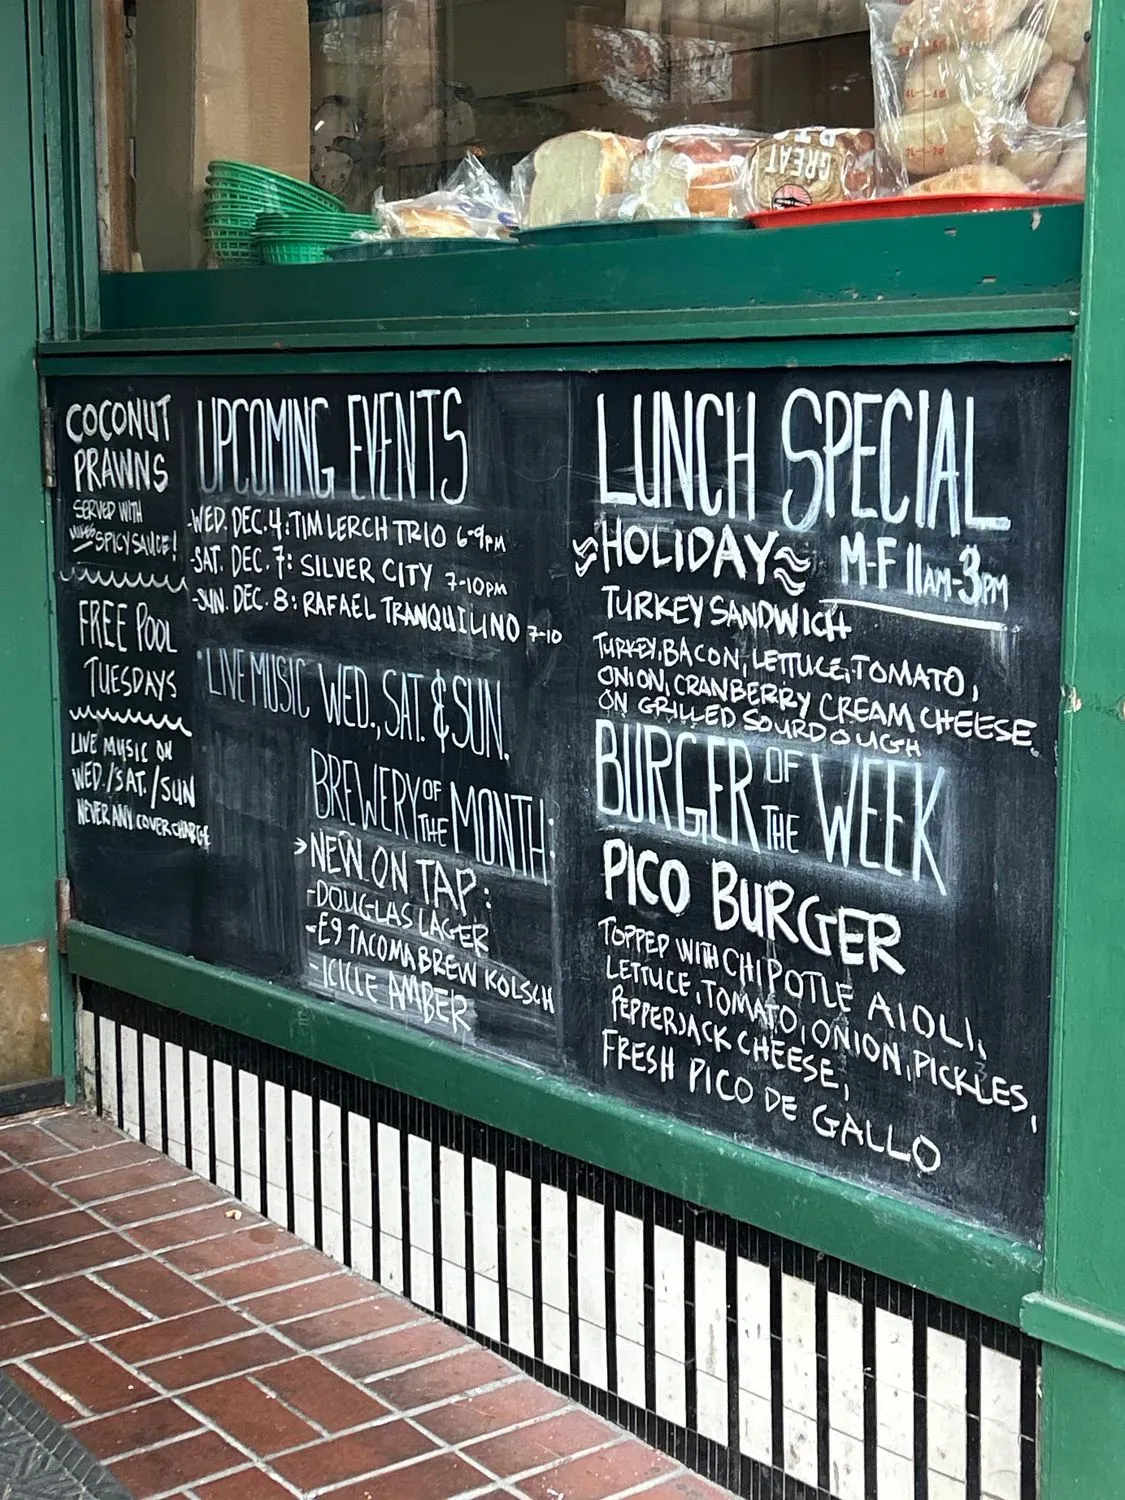 GREAT
COCONUT
PRAWNS
SERVED WITH
SPICY SAUCE!
FREE POOL
TUESDAYS
LIVE MUSIC ON
WED./SAT./SUN
NEVER ANY COVER CHARGE
UPCOMING EVENTS
-WED. DEC. 4: TIM LERCH TRIO 6-9PM
-SAT. DEC. 7: SILVER CITY 7-10PM
-SUN. DEC. 8: RAFAEL TRANQUILINO 7-10
·LIVE MUSIC WED., SAT. & SUN.
BREWERY OF THE MONTH:
>NEW ON TAP:
-DOUGLAS LAGER
-E9 TACOMA BREW KOLSCH
-ICICLE AMBER
LUNCH SPECIAL
HOLIDAY M-F 11AM-3PM
TURKEY SANDWICH
TURKEY, BACON, LETTUCE, TOMATO,
ONION, CRANBERRY CREAM CHEESE
ON GRILLED SOURDOUGH
BURGER OF THE WEEK
PICO BURGER
TOPPED WITH CHIPOTLE AIOLI,
LETTUCE, TOMATO, ONION, PICKLES,
PEPPERJACK CHEESE,
FRESH PICO DE GALLO